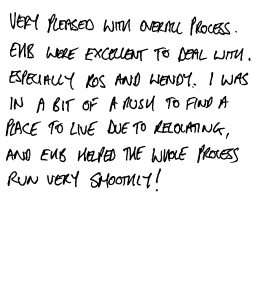 VERY PLEASED WITH OVERALL PROCESS.
EHB WERE EXCELLENT TO DEAL WITH.
ESPECIALLY ROS AND WENDY. I WAS
IN A BIT OF A RUSH TO FIND A
PLACE TO LIVE DUE TO RELOCATING,
AND EHB HELPED THE WHOLE PROCESS
RUN VERY SMOOTHLY!